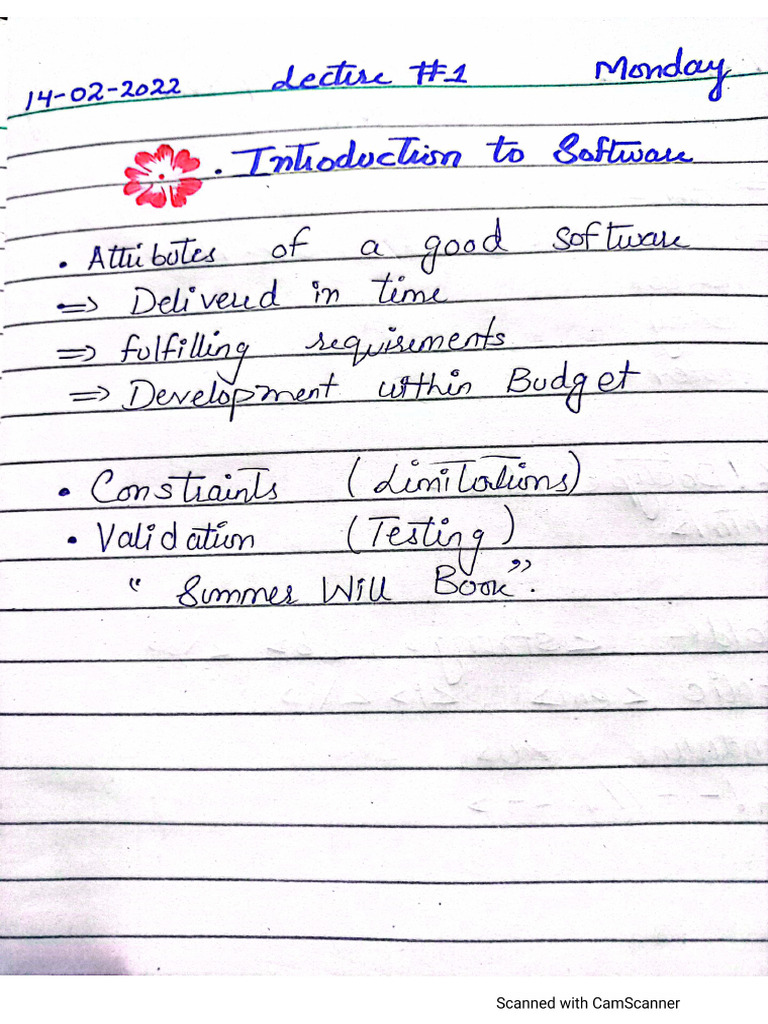 14-02-2022 Lecture #1 Monday
. Introduction to Software
. Attributes of a good software
=> Delivered in time
=> fulfilling requirements
=> Development within Budget
. Constraints (Limitations)
. Validation (Testing)
" Summer Will Book".
Scanned with CamScanner